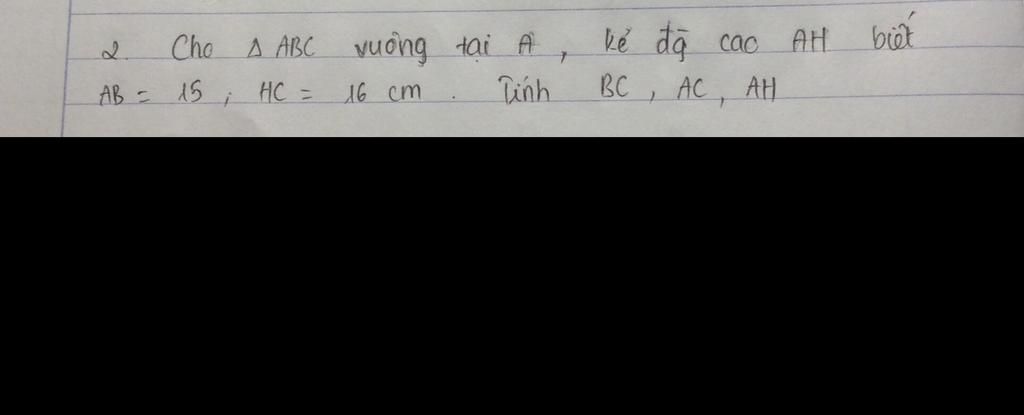 2. Cho Δ ABC vuông tại A, kẻ đg cao AH biết
AB = 15; HC = 16 cm. Tính BC, AC, AH